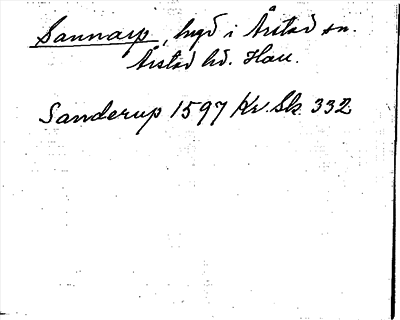 Sannarp, bygd i Årstad sn.
Årstad hd. Hall.
Sanderup 1597 Kr. Sk. 332